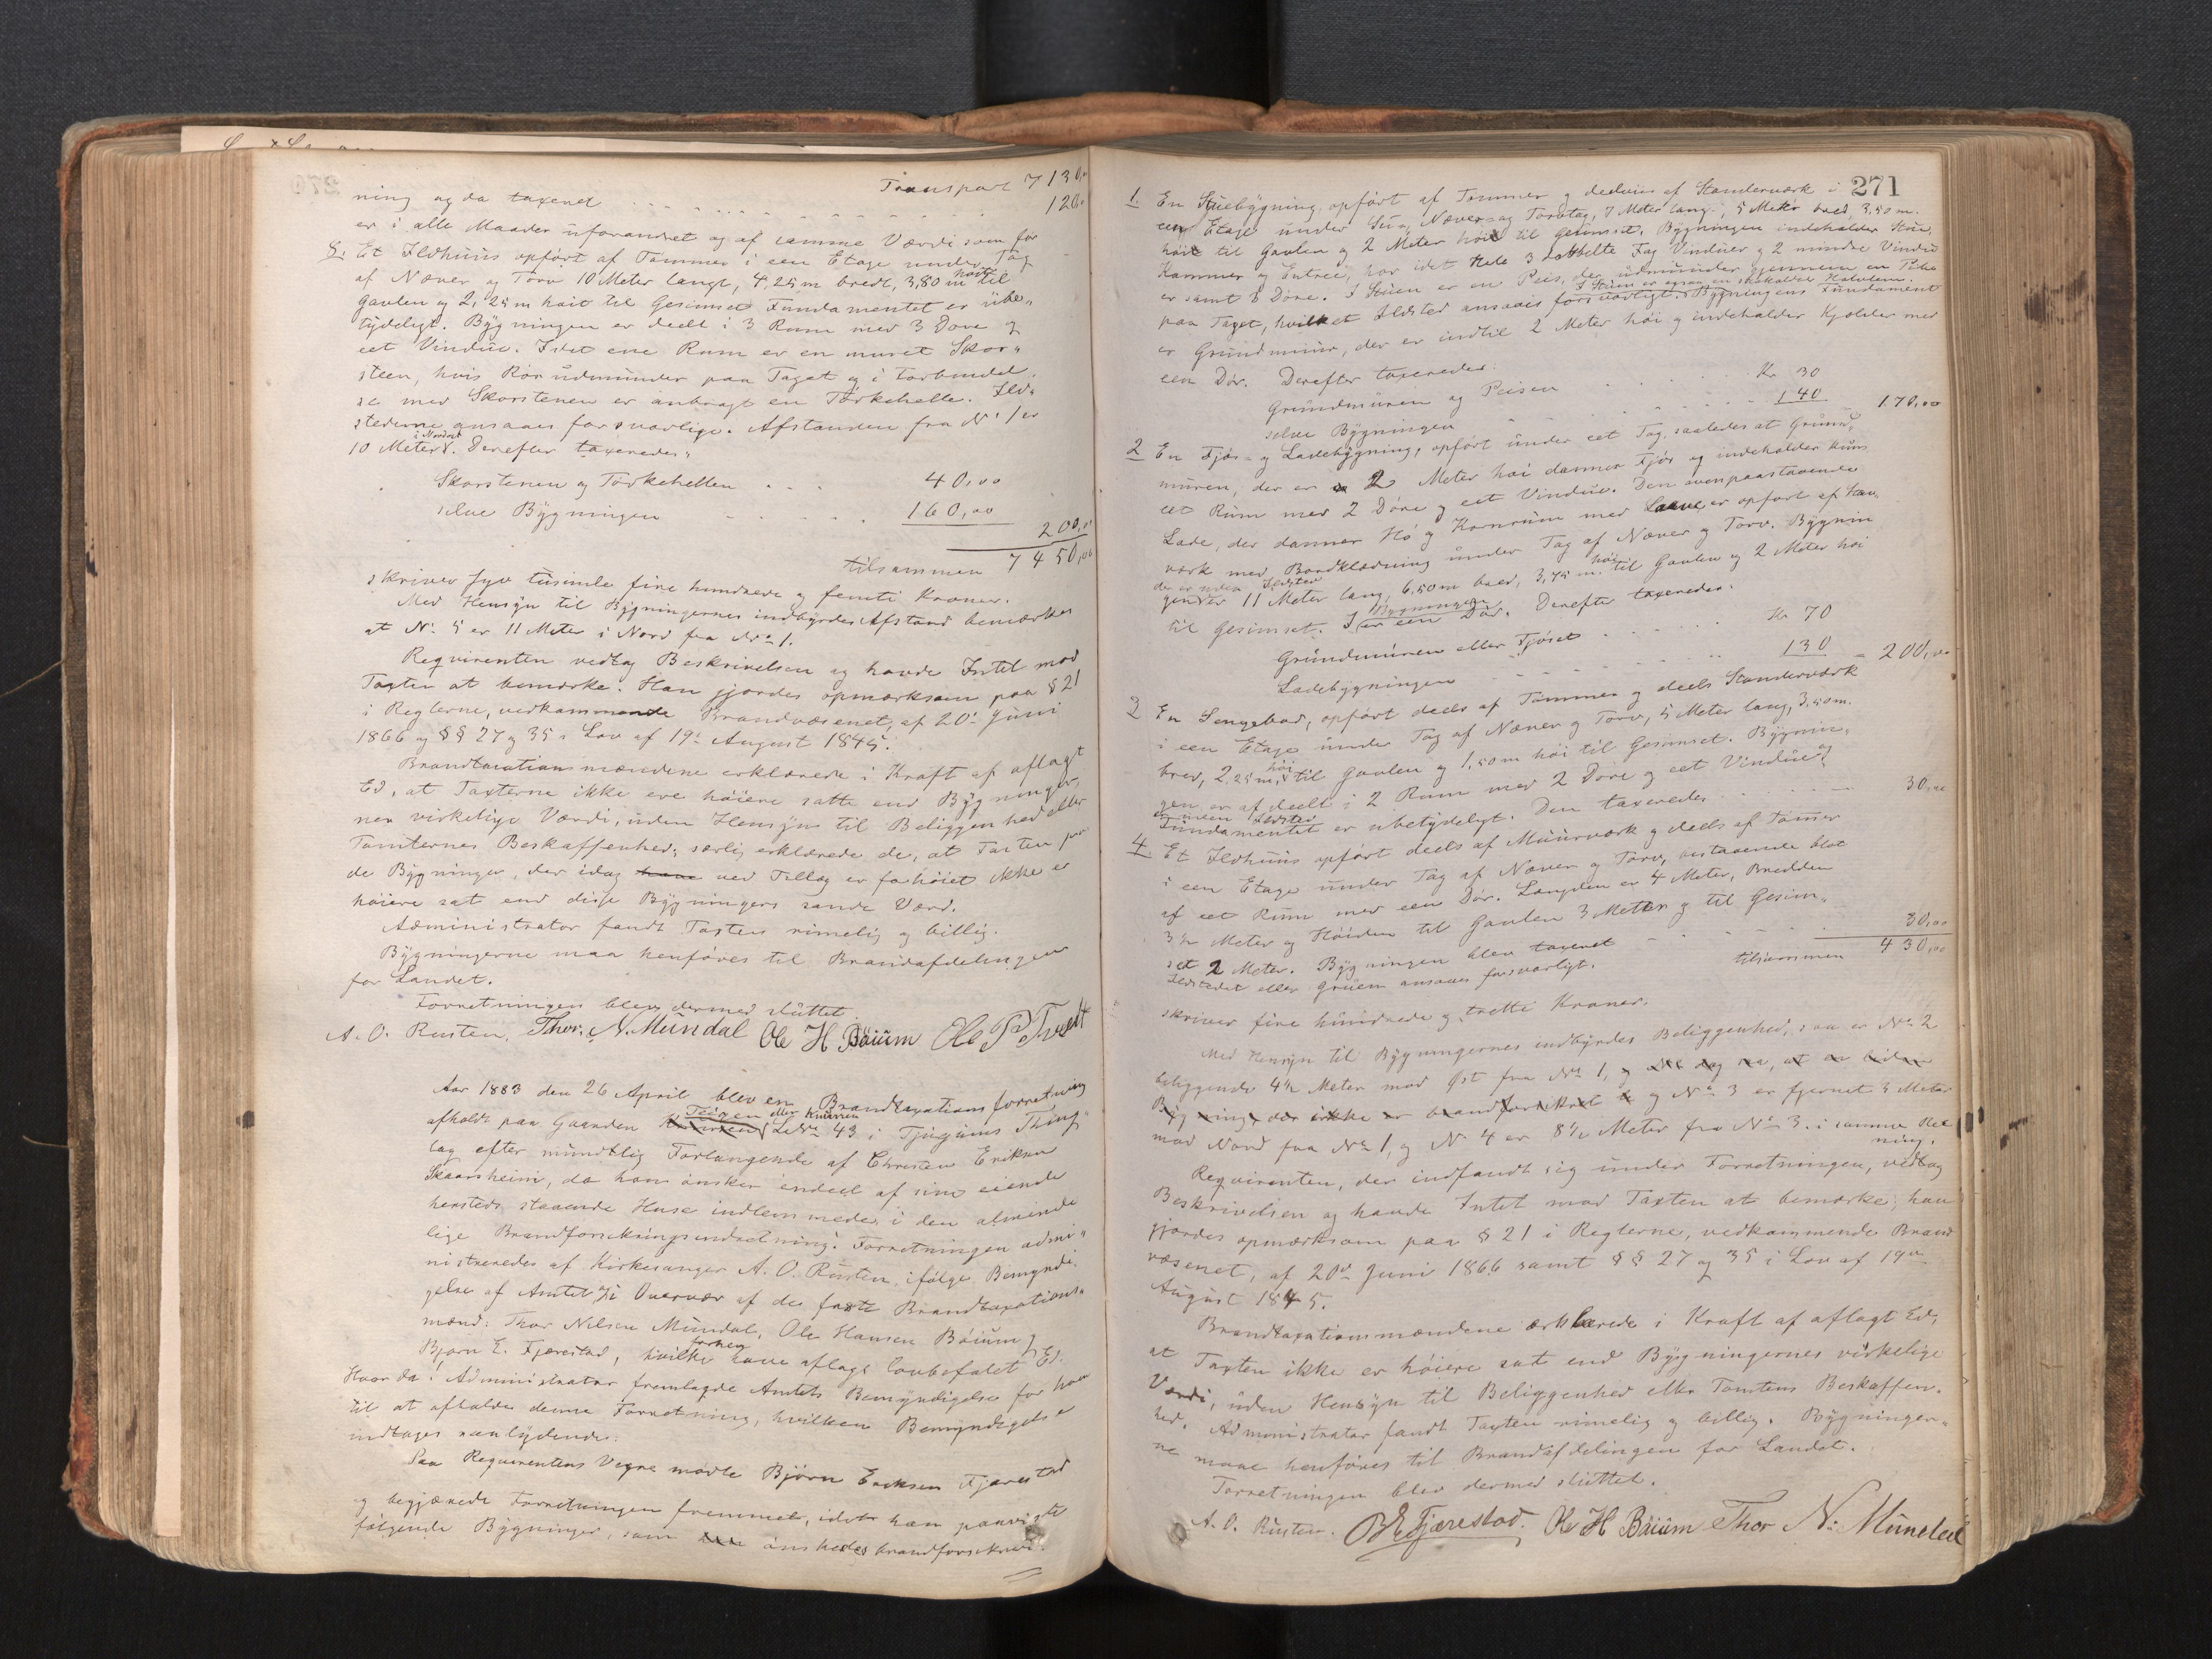 Transport 7130,00
ning og da taxeret . . . . . . . . . . . 120.
er i alle Maader uforandret og af samme Værdi som før
8. Et Ildhuus opført af Tømmer i een Etage under Tag
af Næver og Torv 10 Meter langt, 4,25 m bredt, 3,80 m høit til
Gavlen og 2,25 m høit til Gesimset Fundamentet er übe„
tydeligt. Bygningen er deelt i 3 Rum med 3 Døre og
eet Vindue. I det ene Rum er en muret Skor„
steen, hvis Rør udmunder paa Taget og i Forbindel„
se med Skorstenen er anbragt en Tørkehelle. Ild„
stederne ansaaes forsvarlige. Afstanden fra No 1 er
10 Meter i Nordost. Derefter taxeredes„
Skorstenen og Tørkehellen . . . 40,00
selve Bygningen . . . . . 160,00
200,00
tilsammen 7450,00
skriver syv tusinde fire hundrede og femti Kroner.
Med Hensyn til Bygningernes indbyrdes Afstand bemærkes
at No 5 er 11 Meter i Nord fra No 1.
Reqvirenten vedtog Beskrivelsen og havde Intet mod
Taxten at bemærke. Han gjordes opmærksom paa § 21
i Reglerne, vedkommende Brandvæsenet, af 20de Juni
1866 og §§ 27 og 35 i Lov af 19de August 1845.
Brandtaxationsmændene erklærede i Kraft af aflagt
Ed, at Taxterne ikke ere høiere satte end Bygninger„
nes virkelige Værdi, uden Hensyn til Beliggenhed eller
Tomternes Beskaffenhed; særlig erklærede de, at Taxten paa
de Bygninger, der idag have ved Tillæg er forhøiet ikke er
høiere sat end disse Bygningers sande Værd.
Administrator fandt Taxten rimelig og billig.
Bygningerne maa henføres til Brandafdelingen
for Landet.
Forretningen blev dermed sluttet
A. O. Rusten, Thor. N. Mündal Ole H Böiüm Ole P Tvedt
Aar 1883 den 26 April blev en Brandtaxationsforretning
afholdt paa Gaarden Teigen eller Knurren LNo 43 i Tjugums Thing
lag efter mundtlig Forlangende af Christen Eriksen
Skaarsheim, da han ønsker endeel af sine eiende
hersteds staaende Huse indlemmedes i den alminde
lige Brandforsikringsindretning. Forretningen admi„
nistreredes af Kirkesanger A. O. Rusten ifølge Bemyndi„
gelse af Amtet i Overvær af de faste Brandtaxations„
mænd: Thor Nilsen Mundal, Ole Hansen Bøium og
Bjørn E. Fjærestad, hvilke forhen have aflagt lovbefalet Ed.
Hvor da! Administrator fremlagde Amtets Bemyndigelse for ham
til at afholde denne Forretning, hvilken Bemyndigelse
indtages saalydende:
Paa Requirentens Vegne mødte Bjørn Eriksen Fjærestad
og begjærede Forretningen fremmet, idet han paaviste
følgende Bygninger, som ønskedes brandforsikret.
271
1. En Stuebygning, opført af Tømmer og deelviis af Standerværk i
een Etage under Næver- og Torvtag, 7 Meter lang, 5 Meter bred, 3,50 m.
høit til Gavlen og 2 Meter høit til Gesimset. Bygningen indeholder Stue,
Kammer og Entree, har idet Hele 3 dobbelte Fag Vinduer og 2 mindre Vindu
er samt 8 Døre. I Stuen er en Peis, der udmunder gjennem en Pibe
I Stuen er ogsaa en saakaldet Kakkelovn.
paa Taget, hvilket Ildsted ansaaes forsvarligt. Bygningens Fundament
er Grundmuur, der er indtil 2 Meter høi og indeholder Kjelder med
een Dør. Derefter taxeredes:
Grundmuren og Peisen . . . . . Kr 30
selve Bygningen . . . . . 140 170,00
2 En Fjøs- og Ladebygning, opført under eet Tag saaledes at Grund„
muren, der er 2 Meter høi danner Fjøs og indeholder kuns
eet Rum med 2 Døre og eet Vindue. Den ovenpaastaaende
Lade, der danner Hø og Kornrum med Laave er opført af Stav„
værk med Bordklædning under Tag af Næver og Torv. Bygnin
der er uden Ildsted
gen er 11 Meter lang, 6,50 m bred, 3,75 m høi til Gavlen og 2 Meter høi
til Gesimset. I Bygningen er een Dør. Derefter taxeredes:
Grundmuren eller Fjøset . . . . . Kr 70
Ladebygningen . . . . . 130 = 200,00
3 En Sengebod, opført deels af Tømmer og deels Standerværk
i een Etage under Tag af Næver og Torv, 5 Meter lang, 3,50 m.
bred, 2,25 m, høi til Gavlen og 1,50 m høi til Gesimset. Bygnin„
gen er af deelt i 2 Rum med 2 Døre og eet Vindue og
er uden Ildsted
Fundamentet er ubetydeligt. Den taxeredes . . . . 30,00
4. Et Ildhuus opført deels af Muurværk og deels af Tømer
i een Etage under Tag af Næver og Torv, bestaaende blot
af eet Rum med een Dør. Længden er 4 Meter, Bredden
3 1/2 Meter og Høiden til Gavlen 3 Meter og til Gesim„
set 2 Meter. Bygningen blev taxeret . . . . . 30,00
Ildstedet eller Gruen ansaaes forsvarligt. tilsammen 430,00
skriver fire hundrede og tretti Kroner.
Med Hensyn til Bygningernes indbyrdes Beliggenhed, saa er No 2
beliggende 4 1/2 Meter mod Øst fra No 1, og
Bygning der ikke er brandforsikret og No 3 er fjernet 3 Meter
mod Nord fra No 1, og No 4 er 8 1/2 Meter fra No 3 i samme Ret
ning.
Reqvirenten, der indfandt sig under Forretningen, vedtog
Beskrivelsen og havde Intet mod Taxten at bemærke; han
gjordes opmærksom paa § 21 i Reglerne, vedkommende Brand
væsenet, af 20de Juni 1866 samt §§ 27 og 35 i Lov af 19de
August 1845.
Brandtaxationsmændene erklærede i Kraft af aflagt Ed,
at Taxten ikke er høiere sat end Bygningernes virkelige
Værdi, uden Hensyn til Beliggenhed eller Tomtens Beskaffen„
hed. Administrator fandt Taxten rimelig og billig. Bygninger„
ne maae henføres til Brandafdelingen for Landet.
Forretningen blev dermed sluttet.
A. O. Rusten. B E Fjærestad. Ole H Böiüm Thor N. Mündal